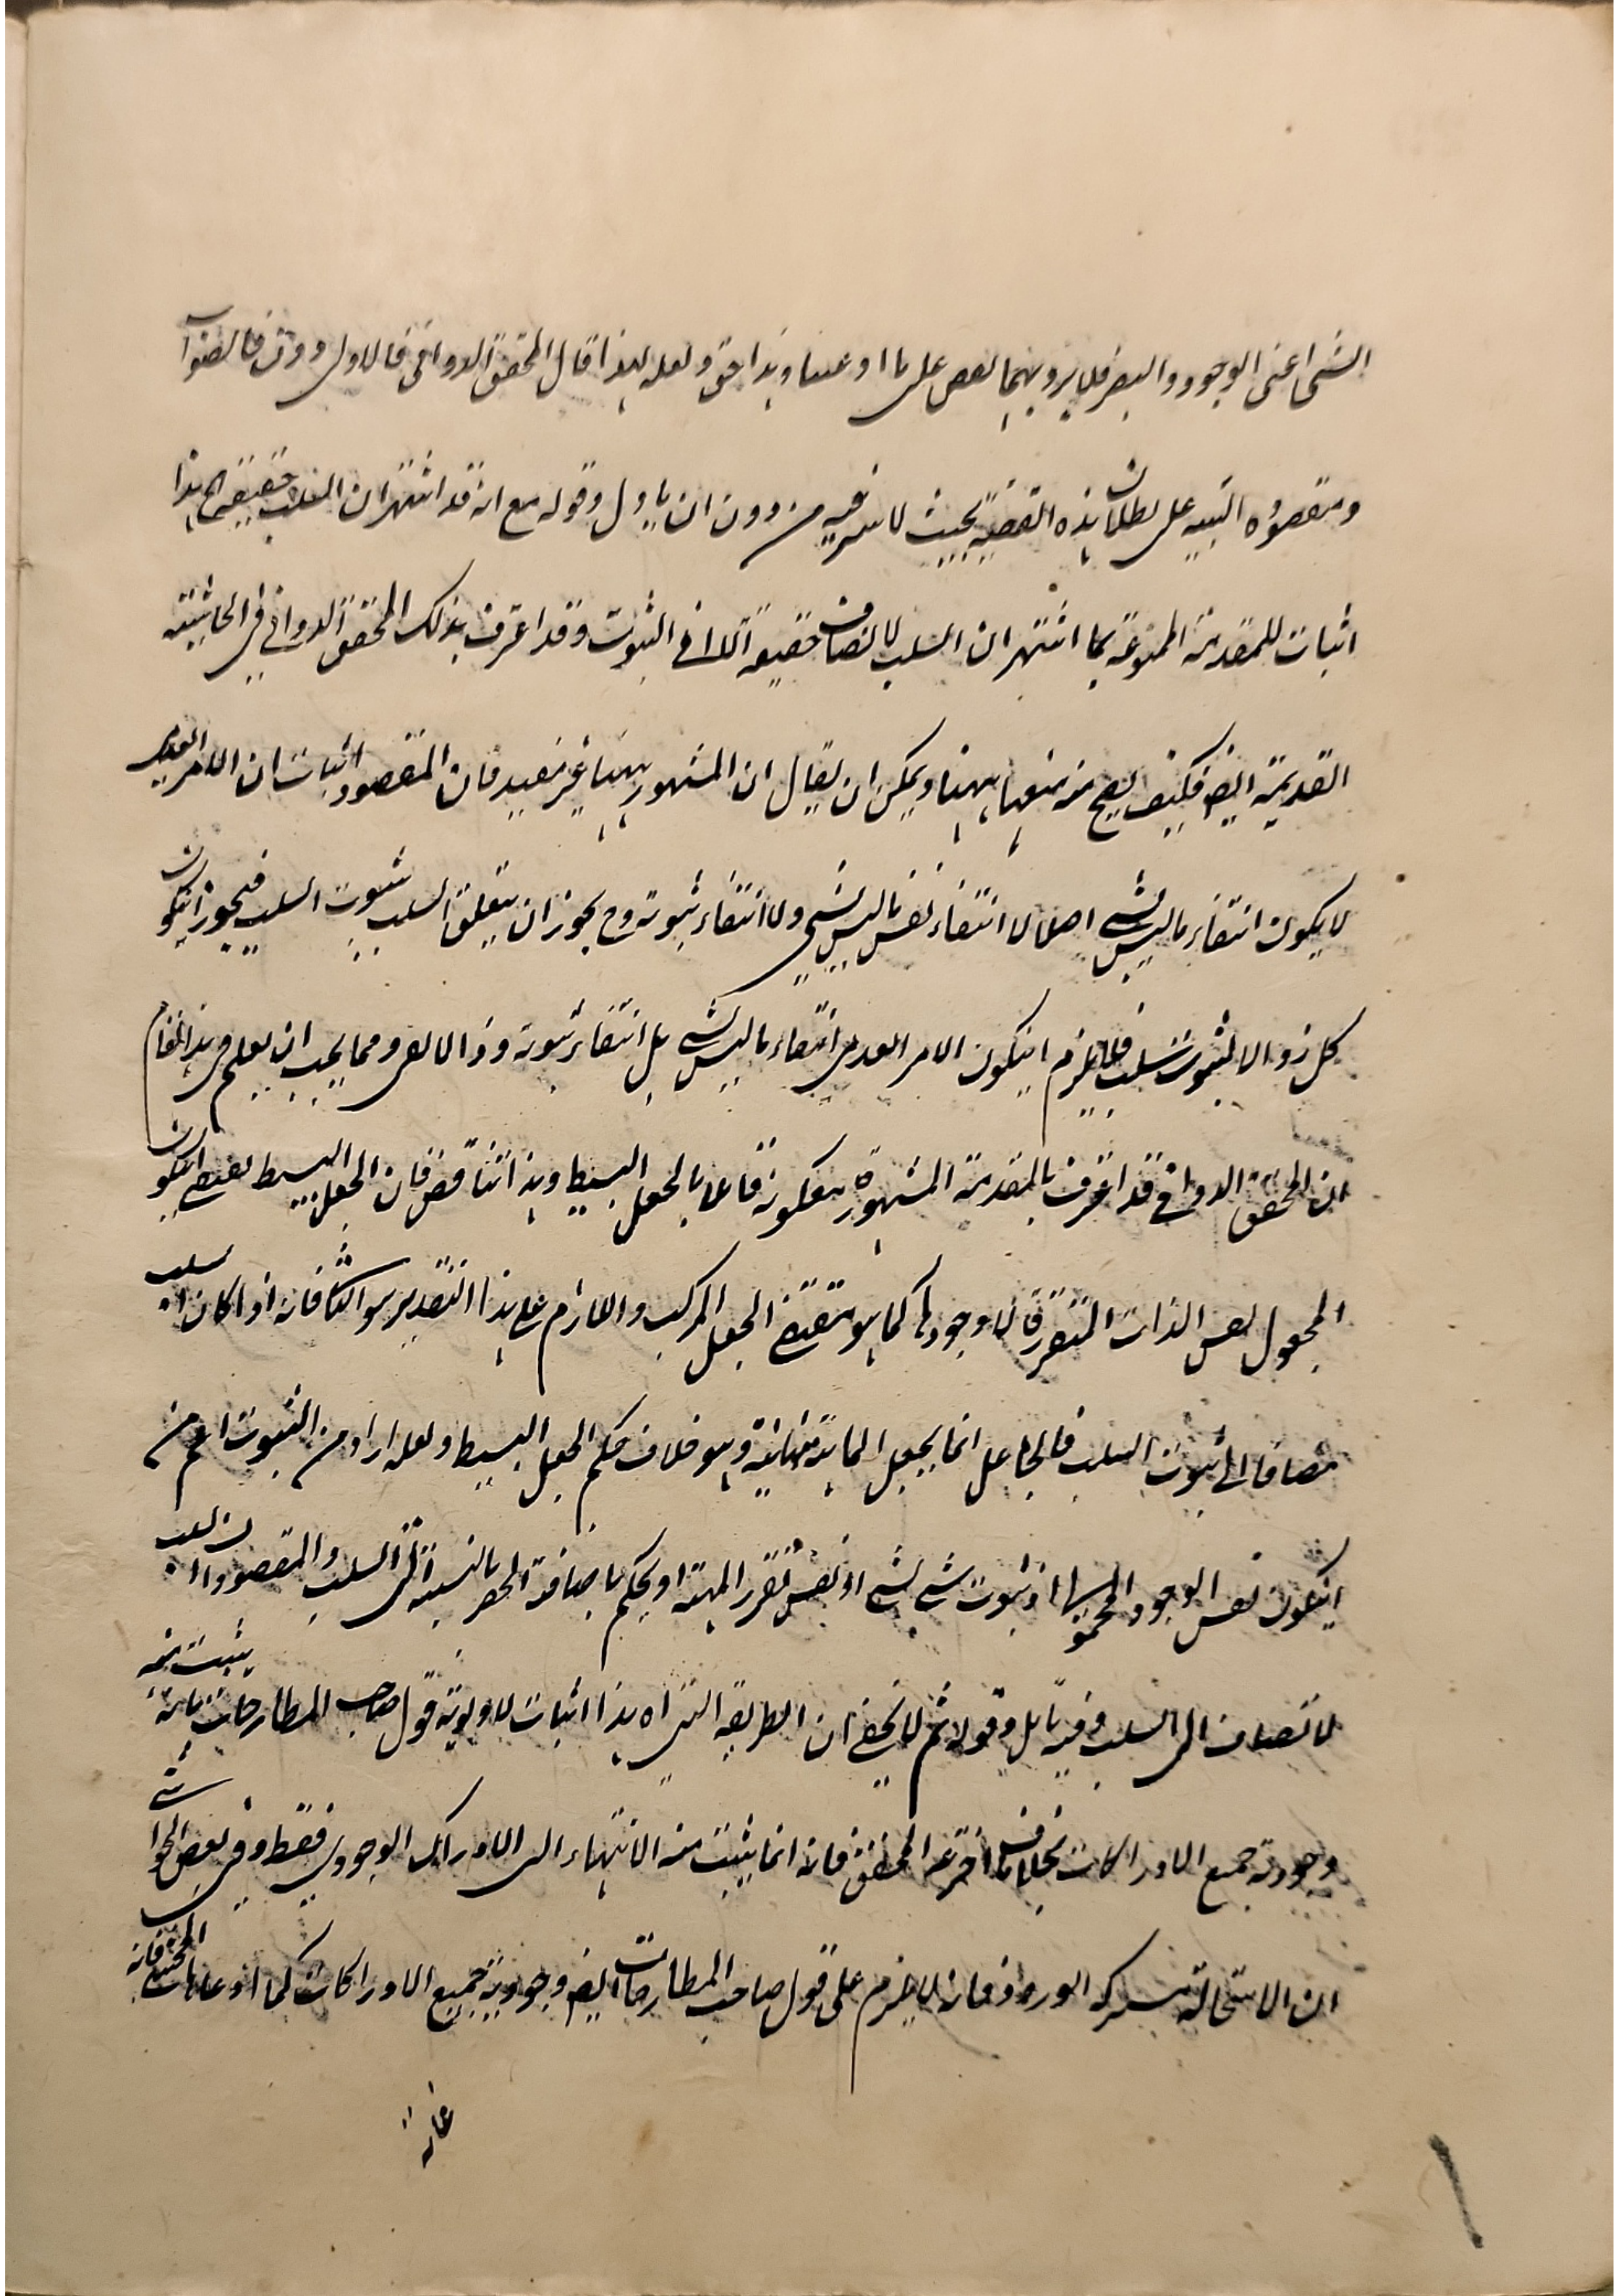 الشئ اعنى الوجود والبصر فلا يرد بهما نقض على ما ادعينا وهذا حق ولعله لهذا قال المحقق الدوانى فالاولى دون فالصواب
ومقصوده التنبيه على بطلان هذه القضية بحيث لا سرفيه من دون ان ياول وقوله مع انه قد اشتهر ان السلب حقيقة الخ هذا
اثبات للمقدمة الممنوعة بما اشتهر ان السلب لا يضاف حقيقة الا الى الثبوت وقد اعترف بذلك المحقق الدوانى فى الحاشية
القديمة ايضا فكيف يصح منه منعها ههنا ويمكن ان يقال ان المشهور ههنا غير مفيد فان المقصود اثبات ان الامر العدمى
لا يكون انتفاء ما ليس بشئ اصلا لا انتفاء نفس ما ليس بشئ ولا انتفاء ثبوته وح يجوز ان يتعلق السلب بثبوت السلب فيجوز ان يكون
كل زوالا لثبوت سلب فلا يلزم ان يكون الامر العدمى انتفاء ما ليس بشئ بل انتفاء ثبوته وذا لا ومما يجب ان يعلم فى هذا المقام
ان المحقق الدوانى قد اعترف بالمقدمة المشهورة مع كونه قائلا بالجعل البسيط وهذا تناقض فان الجعل البسيط يقتضى ان يكون
المجعول نفس الذات المتقررة لا وجودها كما هو مقتضى الجعل المركب واللازم على هذا التقدير هو الثانى فانه اذا كان السلب
مضافا الى ثبوت السلب فالجاعل انما يجعل الماهية ثابتة وهو خلاف حكم الجعل البسيط ولعله اراد من الثبوت اعم من
ان يكون نفس الوجود المحمولى او ثبوت شئ لشئ او نفس تقرر المهية او يحكم باضافة الحصر بالنسبة الى السلب والمقصود ان السلب
لا يضاف الى السلب وفيه تامل وقوله ثم لا يخفى ان الطريقة التى اه هذا اثبات لاولوية قول صاحب المطارحات بانه يثبت منه
وجودية جميع الادراكات بخلاف ما اخترعه المحقق فانه انما يثبت منه الانتهاء الى الادراك الوجودى فقط وفى بعض الحواشى
ان الاستحالة مشتركة الورود فانه لا يلزم على قول صاحب المطارحات ايضا وجودية جميع الادراكات كما ادعاه المحقق فانه
غاية